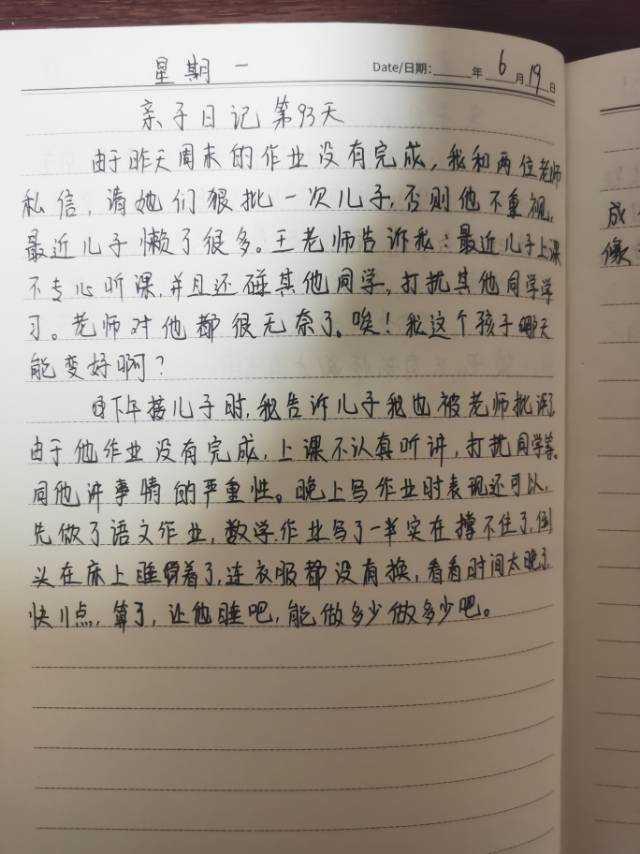 星期一 Date/日期: 年 6 月 19 日
亲子日记第93天
由于昨天周末的作业没有完成,我和两位老师
私信,请她们狠批一次儿子,否则他不重视。
最近儿子懒了很多。王老师告诉我:最近儿子上课
不专心听课,并且还碰其他同学,打扰其他同学学
习。老师对他都很无奈了。唉!我这个孩子哪天
能变好啊?
下午接儿子时,我告诉儿子我也被老师批评了
由于他作业没有完成,上课不认真听讲,打扰同学等。
同他讲事情的严重性。晚上写作业时表现还可以,
先做了语文作业,数学作业写了一半实在撑不住了,倒
头在床上睡着了,连衣服都没有换,看看时间太晚了
快11点,算了,让他睡吧,能做多少做多少吧。
成
像